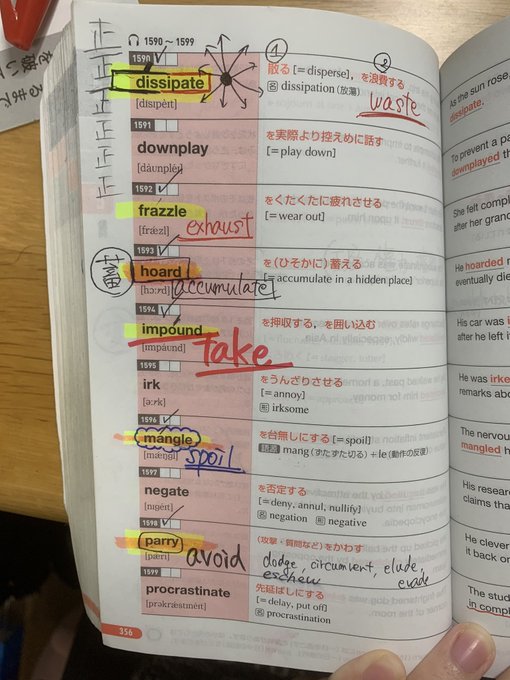 を敵い
るまで
正
正
正
正
正
正
1590 ~ 1599
① ②
1590
dissipate
[dísɪpèɪt]
散る [= disperse], を浪費する
名 dissipation (放蕩)
waste
1591
downplay
[dàunpléɪ]
を実際より控えめに話す
[= play down]
1592
frazzle
[frǽzl]
exhaust
をくたくたに疲れさせる
[= wear out]
1593
蓄
hoard
[hɔːrd]
accumulate
を(ひそかに)蓄える
[= accumulate in a hidden place]
1594
impound
[ɪmpáund]
Take
を押収する, を囲い込む
1595
irk
[əːrk]
をうんざりさせる
[= annoy]
形 irksome
1596
mangle
[mǽŋgl]
spoil
を台無しにする [= spoil]
語源 mang (ずたずた切る) + le (動作の反復)
1597
negate
[nɪgéɪt]
を否定する
[= deny, annul, nullify]
名 negation 形 negative
1598
parry
[pǽri]
avoid
(攻撃・質問など)をかわす
dodge, circumvent, elude,
eschew evade
1599
procrastinate
[prəkrǽstɪnèɪt]
先延ばしにする
[= delay, put off]
名 procrastination
356
As the sun rose,
dissipate.
To prevent a pa
downplayed th
She felt compl
after her grand
He hoarded
eventually die
His car was i
after he left i
He was irke
remarks abo
The nervou
mangled
His resear
claims tha
He cleve
it back on
The stud
in compl